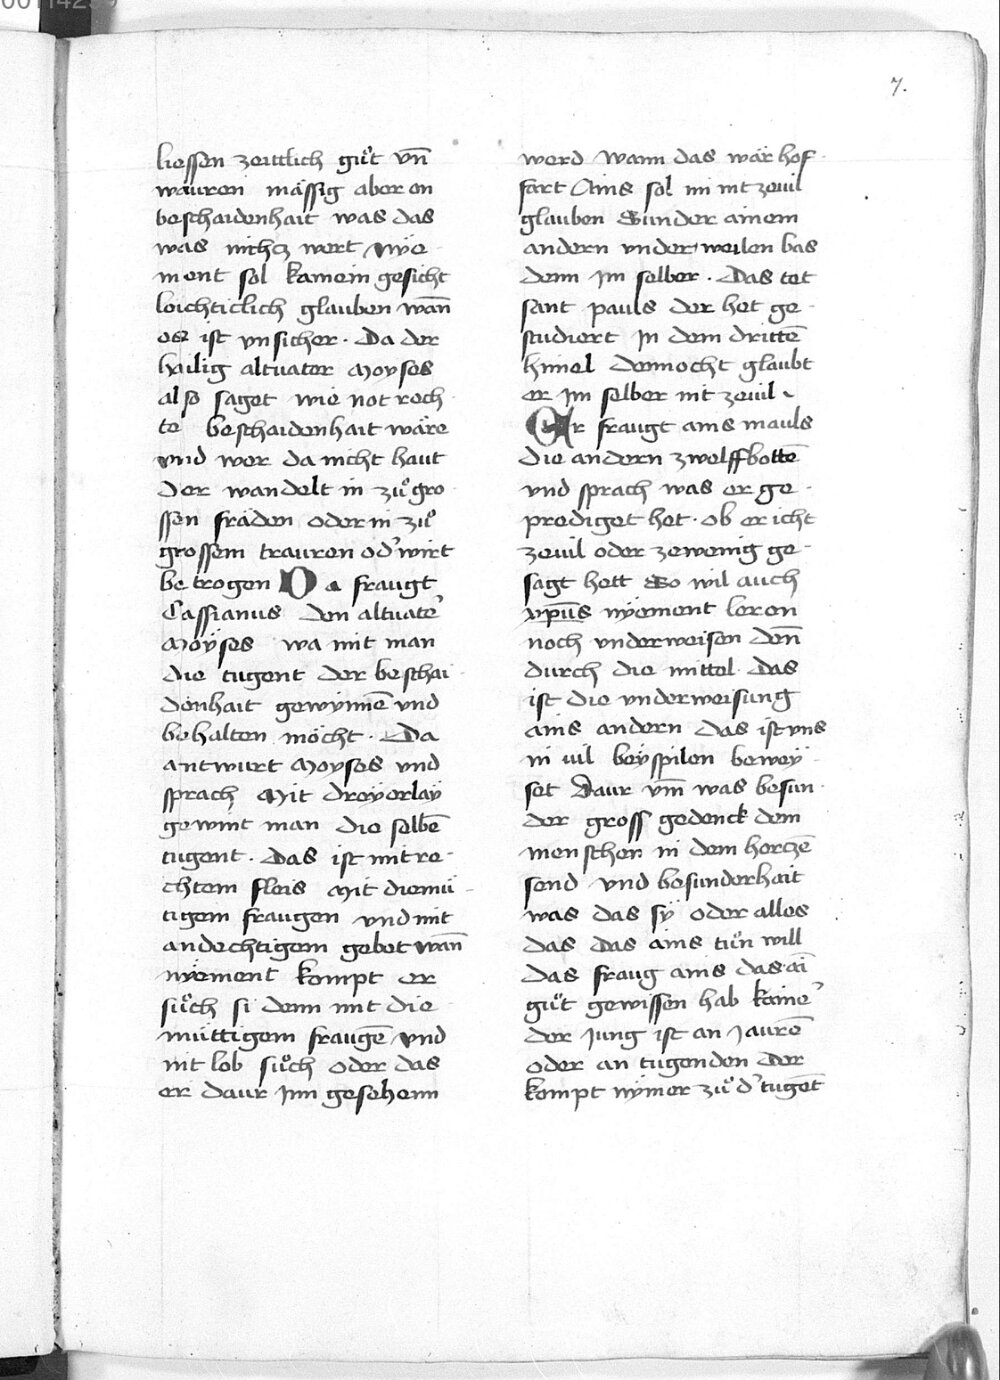 7.
liessen zeittlich guͦt vn̄
wauren mässig aber on
beschaidenhait was das
was nichcz wert Nye
ment sol kainem gesicht
loichticlich glauben wan̄
es ist vnsicher · Da der
hailig altuater Moyses
also saget wie not rech
te beschaidenhait wäre
vnd wer da nicht haut
Der wandelt in zuͦ gro
ssen fräden oder in zuͦ
grossem trauren od' wirt
betrogen Da fraugt
Cassianus den altuate'
Moÿses wa mit man
die tugent der beschai
denhait gewÿnnē vnd
behalten möcht · Da
antwurt Moyses vnd
sprach Mit dreÿerlaÿ
gewint man die selbē
tugent · Das ist mit re-
chtem fleis Mit diemü-
tigem fraugen vnd mit
andechtigem gebet wan̄
nyement kompt er
suͦch si denn mit die
müttigem fraugē vnd
nit lob suͦch oder das
er daur Inn gesehenn
werd Wann das wär hof
fart Ains sol im nit zeuil
glauben Sunder ainem
andern vnder weilen bas
denn Im selber · Das tet
sant pauls der het ge-
studiert In dem drittē
himel dennocht glaubt
er Im selber nit zeuil
Er fraugt ains mauls
die andern zwelffbottē
vnd sprach was er ge-
prediget het · ob er icht
zeuil oder zewenig ge-
sagt hett So wil auch
xp̄us nyement leren
noch vnderweisen den̄
durch die mittel · Das
ist die vnderweisung
ains andern Das ist vns
in uil beÿspilen bewey
set Daur vm̄ was besun
der gross gedenck dem
menschen in dem herczē
send vnd besunderhait
was das sÿ oder alles
das das ains tuͦn will
das fraug ains das ai
guͦt gewissen hab kaine'
der Jung ist an Jaurē
oder an tugenden Der
kompt nymer zuͦ d' tugēt